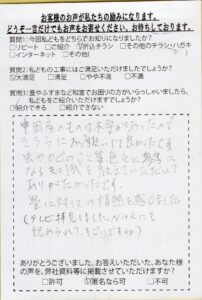 お客様のお声が私たちの励みになります。
どうぞ一言だけでもお声をお寄せください。お待ちしております。
質問1:今回私どもをどちらでお知りになりましたか?
□リピート □ご紹介 ☑折込チラシ □その他のチラシ・ハガキ
□インターネット □その他(
質問2:私どもの工事にはご満足いただけましたでしょうか?
☑大満足 □満足 □やや不満 □不満
質問3:畳やふすまなど和室でお困りの方がいらっしゃいましたら、
私どもをご紹介いただけますでしょうか?
☑紹介できる □紹介できない
中国産のもの
こちらにお願いして良かったです
教えていただいて
ありがたかったです。
畳に対しての情熱を感じました
(テレビ拝見しました。NHKにも
認められて、すごいですね)
ありがとうございました。お答えいただいた、あなた様
の声を、弊社資料等に掲載させていただけますか?
□許可 ☑匿名なら可 □不可